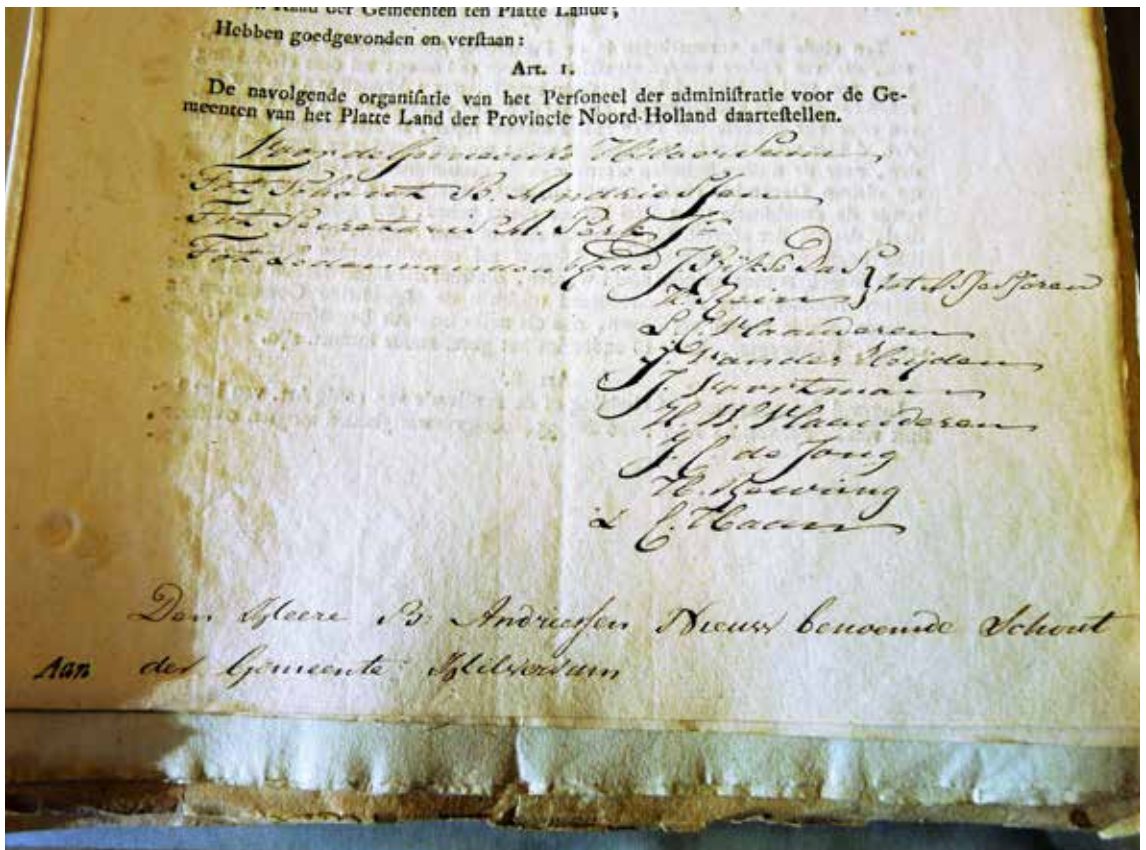 Raad der Gemeenten ten Platte Lande;
Hebben goedgevonden en verſtaan:
Art. 1.
De navolgende organiſatie van het Perſoneel der adminiſtratie voor de Ge-
meenten van het Platte Land der Provincie Noord-Holland daarteſtellen.
Voor de Gemeente Hilversum
Tot Schout B. Andriessen
Tot Secretaris A. Perk Jr
Tot Leden van den Raad J.
tot Assessoren
Vlaanderen
J. van der Heijden
J. Voortman
H. W. Vlaanderen
J. C. de Jong
C. Haan
Den Heere B. Andriessen Nieuw benoemde Schout
Aan der Gemeente Hilversum